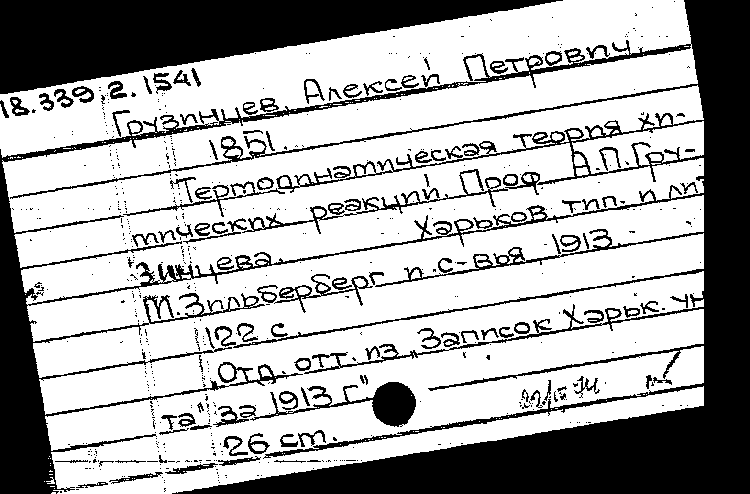 18.339.2.1541
Грузинцев, Алексей Петрович.
1851.
Термодинамическая теория хи-
мических реакций. Проф. А.П.Гру-
зинцева. Харьков, тип. и лит
М.Зильберберг и с-вья, 1913.
122 с.
„Отд. отт. из „Записок Харьк. ун
та" за 1913 г"
26 cm.